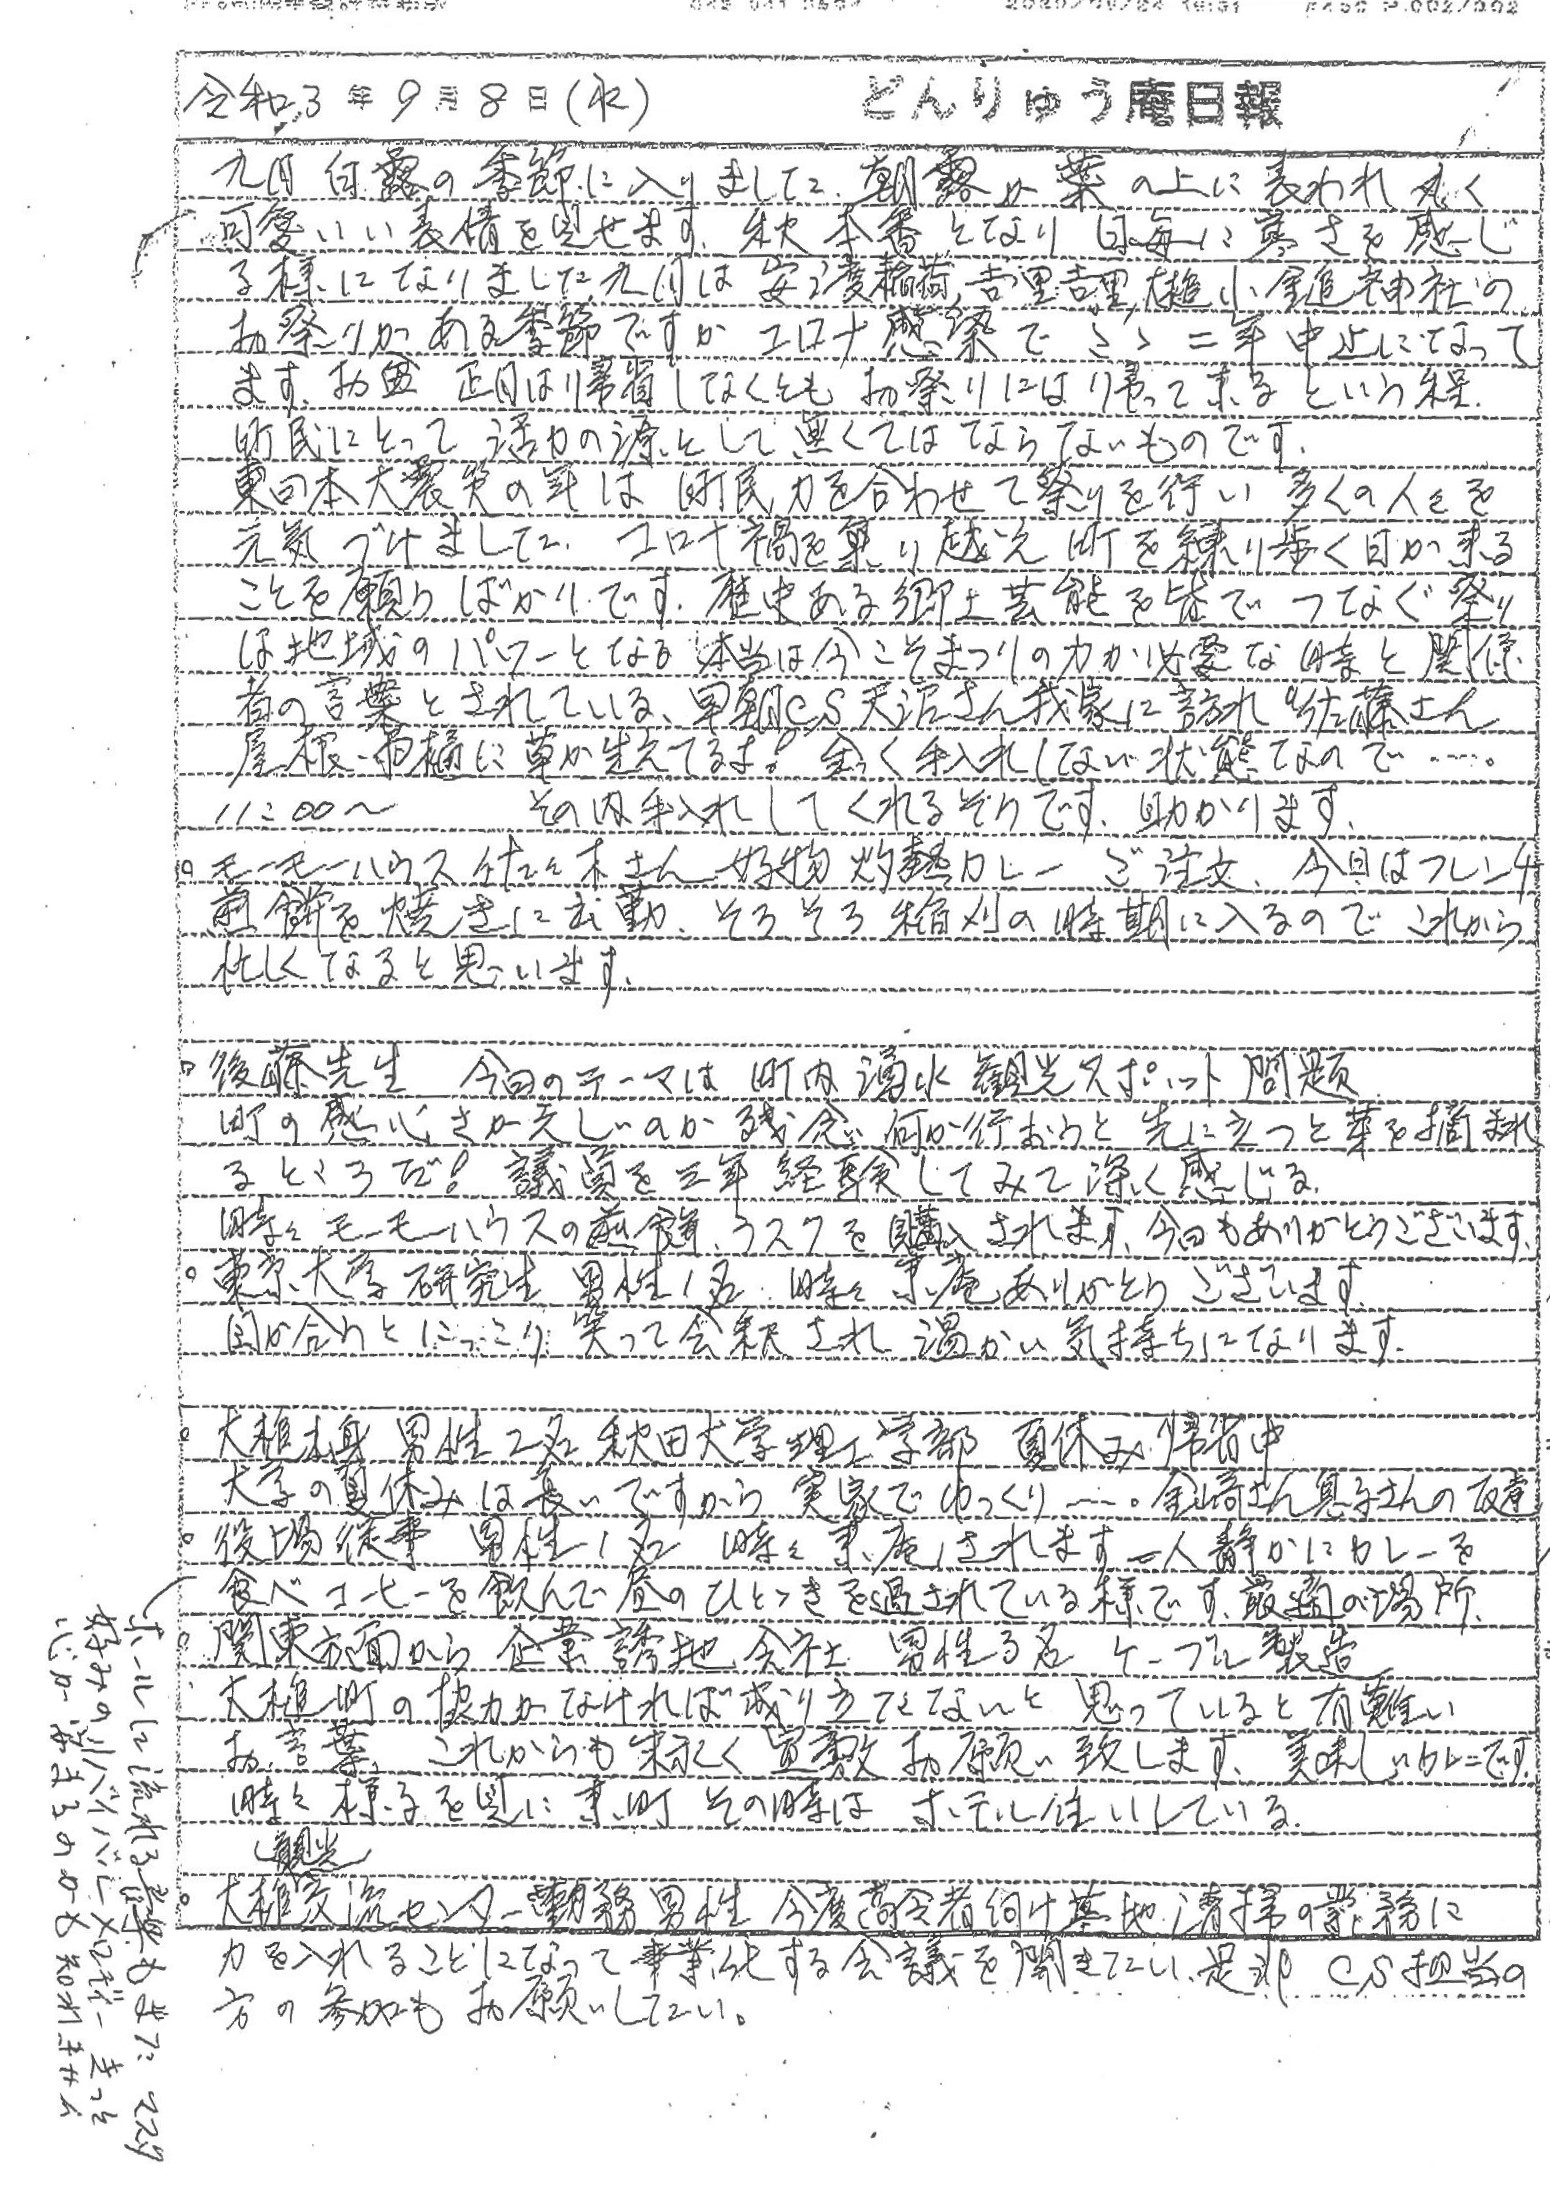 令和3年9月8日(水) どんりゅう庵日報
九月白露の季節に入りました、朝露が葉の上に表われ丸く
可愛いい表情を見せます、秋本番となり日毎に寒さを感じ
る様になりました、九月は安渡稲荷、吉里吉里、大槌小鎚神社の
お祭りがある季節ですがコロナ感染でここ二年中止になって
ます、お盆 正月は帰省しなくともお祭りには帰って来るという程、
町民にとって活力の源として無くてはならないものです、
東日本大震災の年は町民力を合わせて祭りを行い多くの人々を
元気づけました、コロナ禍を乗り越え町を練り歩く日が来る
ことを願うばかりです、歴史ある郷土芸能を皆でつなぐ祭り
は地域のパワーとなる 本当は今こそまつりの力が必要な時と関係
者の言葉とされている、早朝CS天沼さん我家に訪れ“佐藤さん
屋根、雨樋に草が生えてるよ! 全く手入れしない状態なので……。
11:00～ その内手入れしてくれるそうです、助かります、
○モーモーハウス佐々木さん 好物灼熱カレーご注文、今日はフレンチ
煎餅を焼きに出勤、そろそろ稲刈の時期に入るのでこれから
忙しくなると思います、
○後藤先生 今回のテーマは町内湧水観光スポット問題
町の感心さが乏しいのが残念、何か行おうと先に立つと芽を摘まれ
るところだ! 議員を三年経験してみて深く感じる、
時々モーモーハウスの煎餅、ラスクを購入されます、今回もありがとうございます、
○東京大学研究生 男性1名 時々来庵ありがとうございます、
目が合うとにっこり笑って会釈され温かい気持ちになります、
○大槌出身 男性2名 秋田大学理工学部 夏休み帰省中
大学の夏休みは長いですから実家でゆっくり……。金崎さん息子さんの友達
○役場従事 男性1名 時々来庵されます 一人静かにカレーを
食べコーヒーを飲んで昼のひとときを過されている様です、最適の場所、
○関東方面から企業誘地会社 男性3名 ケーブル製造
大槌町の協力がなければ成り立たないと思っていると有難い
お言葉、これからも末永く宜敷お願い致します、美味しいカレーです、
時々様子を見に来町 その時はホテル住いしている、
観光
○大槌交流センター勤務男性 今度高令者向け墓地清掃の業務に
力を入れることになって事業化する会議を開きたい、是非CS担当の
方の参加もお願いしたい。
ホールに流れる音楽もまたステキ
好みのリバイバルメロディー きっと
心が和まるのかも知れません